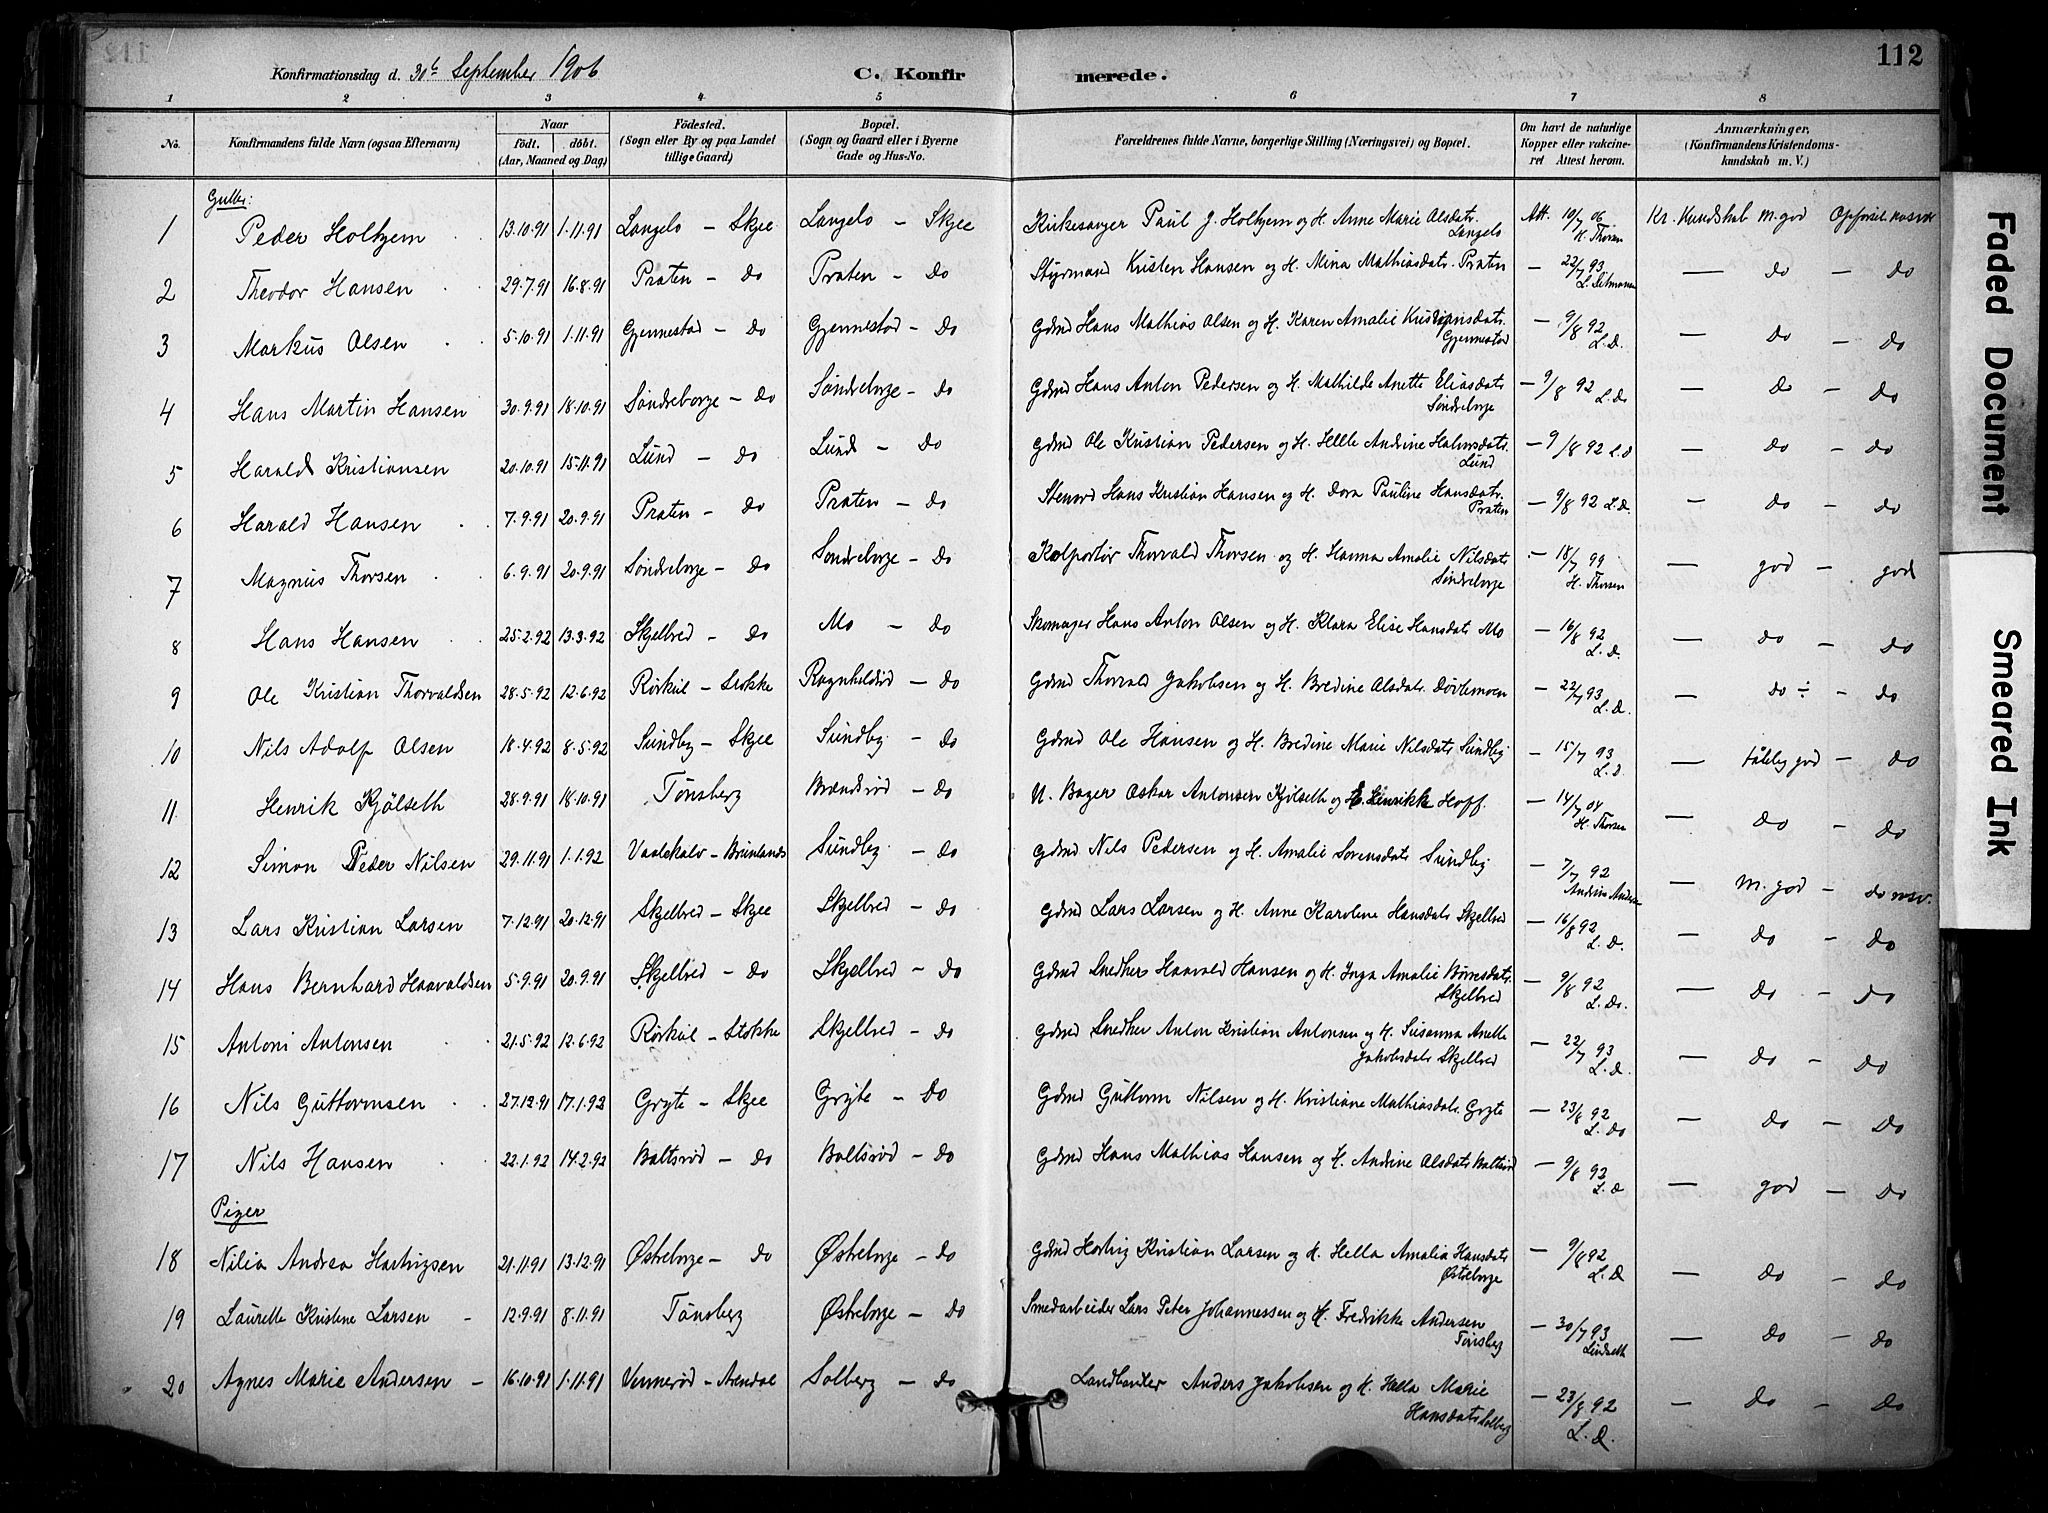 112
Konfirmationsdag d. 30te September 1906
C. Konfirmerede.
1 2 3 4 5 6 7 8
No. Konfirmandens fulde Navn (ogsaa Efternavn) Naar født. døbt. (Aar, Maaned og Dag) Födested. (Sogn eller By og paa Landet tillige Gaard) Bopæl. (Sogn og Gaard eller i Byerne Gade og Hus-No. Forældrenes fulde Navne, borgerlige Stilling (Næringsvei) og Bopæl. Om havt de naturlige Kopper eller vakcineret Attest herom. Anmærkninger. (Konfirmandens Kristendomskundskab m. V.)
Gutter:
1 Peder Holtjem 13.10.91 1.11.91 Langelo – Skjee Langelo – Skjee Kirkesanger Paul J. Holtjem og H. Anne Marie Olsdatr. Langelo Att. 19/7 06 H. Thorsen Kr. Kundskab m. god Opførsel
2 Theodor Hansen 29.7.91 16.8.91 Praten – do Praten – do Styrmand Kristen Hansen og H. Mina Mathiasdatr. Praten – 22/7 93. – do – do
3 Markus Olsen 5.10.91 1.11.91 Gjennestad – do Gjennestad – do Gdmd Hans Mathias Olsen og H. Karen Amalie Gjennestad – 9/8 92 L.D. – do – do
4 Hans Martin Hansen 30.9.91 18.10.91 Søndreborge – do Søndreborge – do Gdmd Hans Anton Pedersen og H. Mathilde Anette Eliasdatr Søndreborge – 9/8 92 L.D. – do – do
5 Harald Kristiansen 20.10.91 15.11.91 Lund – do Lund – do Gdmd Ole Kristian Pedersen og H. Helle Andrine Halvorsdatr. Lund – 9/8 92 L.D – do – do
6 Harald Hansen 7.9.91 20.9.91 Praten – do Praten – do Hans Kristian Hansen og H. Dora Pauline Hansdatr. Praten – 9/8 92 L.D. – do – do
7 Magnus Thorsen 6.9.91 20.9.91 Søndreborge – do Søndreborge – do Kolportør Thorvald Thorsen og H. Hanna Amalie Nilsdatr Søndreborge – 18/7 99 H. Thorsen – god – god
8 Hans Hansen 25.2.92 13.3.92 Skjelbred – do Mo – do Skomager Hans Anton Olsen og H. Klara Elise Hansdatr Mo – 16/8 92 L.D. – do – do
9 Ole Kristian Thorvaldsen 28.5.92 12.6.92 Rørkul – Stokke Ragnhildrød – do Gdmd Thorvald Jakobsen og H. Bredine Olsdatr. Døvlemoen – 22/7 93 L.D. – do ÷ – do
10 Nils Adolf Olsen 18.4.92 8.5.92 Sundby – Skjee Sundby – do Gdmd Ole Hansen og H. Bredine Marie Nilsdatr Sundby – 15/7 93 L.D. – tålelig god – do
11 Henrik Kjölseth 28.9.91 18.10.91 Tønsberg Brændsrød – do U. Bager Oskar Antonsen Kjölseth og Henrikke Hoff. – 14/7 04 H. Thorsen – do – do
12 Simon Peder Nilsen 29.11.91 1.1.92 Vaalekalv – Brunlands Sundby – do Gdmd Nils Pedersen og H. Amalie Sorensdatr Sundby – 7/7 92 – M. god – do msv.
13 Lars Kristian Larsen 7.12.91 20.12.91 Skjelbred – Skjee Skjelbred – do Gdmd Lars Larsen og H. Anne Karolene Hansdatr Skjelbred – 16/8 92 L.D. – do – do
14 Hans Bernhard Haavaldsen 5.9.91 20.9.91 Skjelbred – do Skjelbred – do Gdmd Snedker Haavald Hansen og H. Inga Amalie Børresdatr. Skjelbred – 9/8 92 L.D. – do – do
15 Antoni Antonsen 21.5.92 12.6.92 Rørkul – Stokke Skjelbred – do Gdmd Snedker Anton Kristian Antonsen og H. Susanna Anette Jakobsdatr Skjelbred – 22/7 93 L.D. – do – do
16 Nils Guttormsen 27.12.91 17.1.92 Gryte – Skjee Gryte – do Gdmd Guttorm Nilsen og H. Kristiane Mathiasdatr. Gryte – 23/8 92 L.D. – do – do
17 Nils Hansen 22.1.92 14.2.92 Baltsrød – do Boltsrød – do Gdmd Hans Mathias Hansen og H. Andrine Olsdatr Baltsrød – 9/8 92 L.D – god – do
Piger
18 Nilia Andrea Hartvigsen 21.11.91 13.12.91 Østreborge – do Østreborge – do Gdmd Hartvig Kristian Larsen og H. Hella Amalia Hansdatr Østreborge – 9/8 92 L.D – do – do
19 Laurette Kristine Larsen 12.9.91 8.11.91 Tønsberg Østreborge – do Smedarbeider Lars Peter Johannessen og H. Fredrikke Andersen Tønsberg – 30/7 93 – do – do
20 Agnes Marie Andersen – 16.10.91 1.11.91 Vennerød – Solberg – do Landhandler Anders Jakobsen og H. Hella Marie Hansdatr Solberg – 23/8 92 L.D. – do – do
Faded Document
Smeared Ink